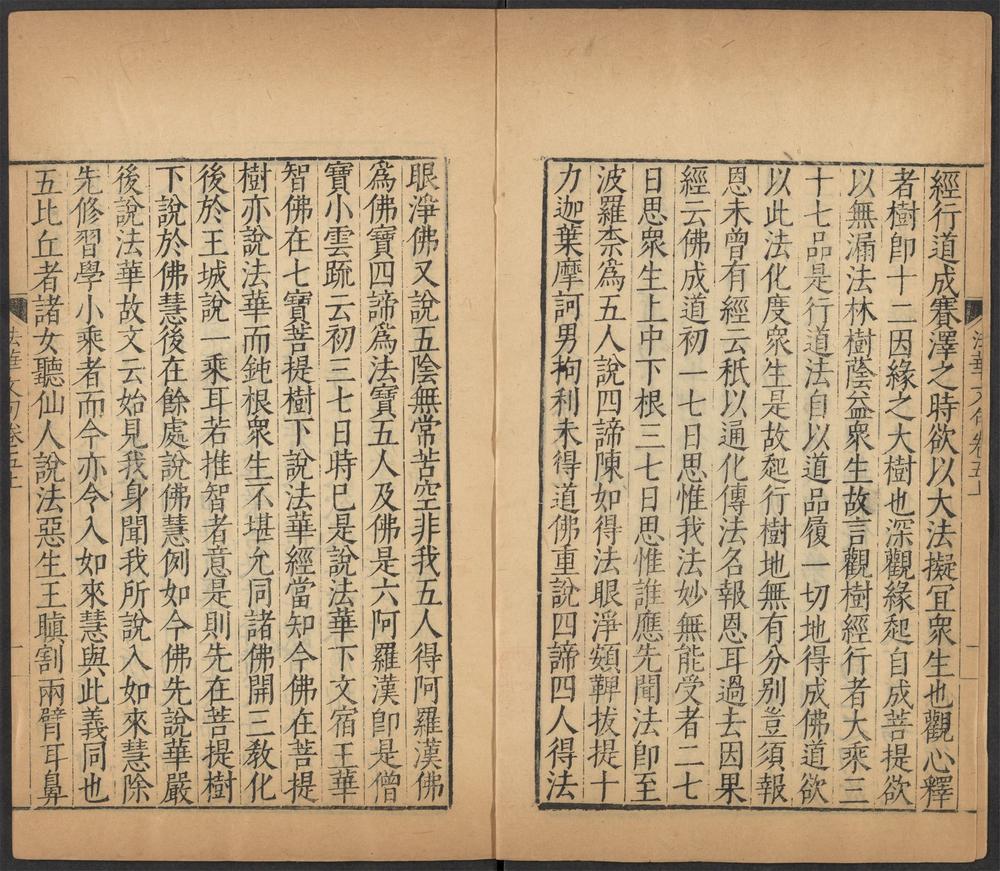 經行道成賽澤之時欲以大法擬宜衆生也觀心釋
者樹卽十二因緣之大樹也深觀緣起自成菩提欲
以無漏法林樹蔭益衆生故言觀樹經行者大乘三
十七品是行道法自以道品履一切地得成佛道欲
以此法化度衆生是故起行樹地無有分别豈須報
恩未曾有經云秖以通化傳法名報恩耳過去因果
經云佛成道初一七日思惟我法妙無能受者二七
日思衆生上中下根三七日思惟誰應先聞法卽至
波羅柰爲五人說四諦陳如得法眼淨頞鞞拔提十
力迦葉摩訶男拘利未得道佛重說四諦四人得法
眼淨佛又說五陰無常苦空非我五人得阿羅漢佛
爲佛寶四諦爲法寶五人及佛是六阿羅漢卽是僧
寶小雲疏云初三七日時已是說法華下文宿王華
智佛在七寶菩提樹下說法華經當知今佛在菩提
樹亦說法華而鈍根衆生不堪允同諸佛開三敎化
後於王城說一乘耳若推智者意是則先在菩提樹
下說於佛慧後在餘處說佛慧例如今佛先說華嚴
後說法華故文云始見我身聞我所說入如來慧除
先修習學小乘者而今亦令入如來慧與此義同也
五比丘者諸女聽仙人說法惡生王瞋割兩臂耳鼻
法華文句卷五上